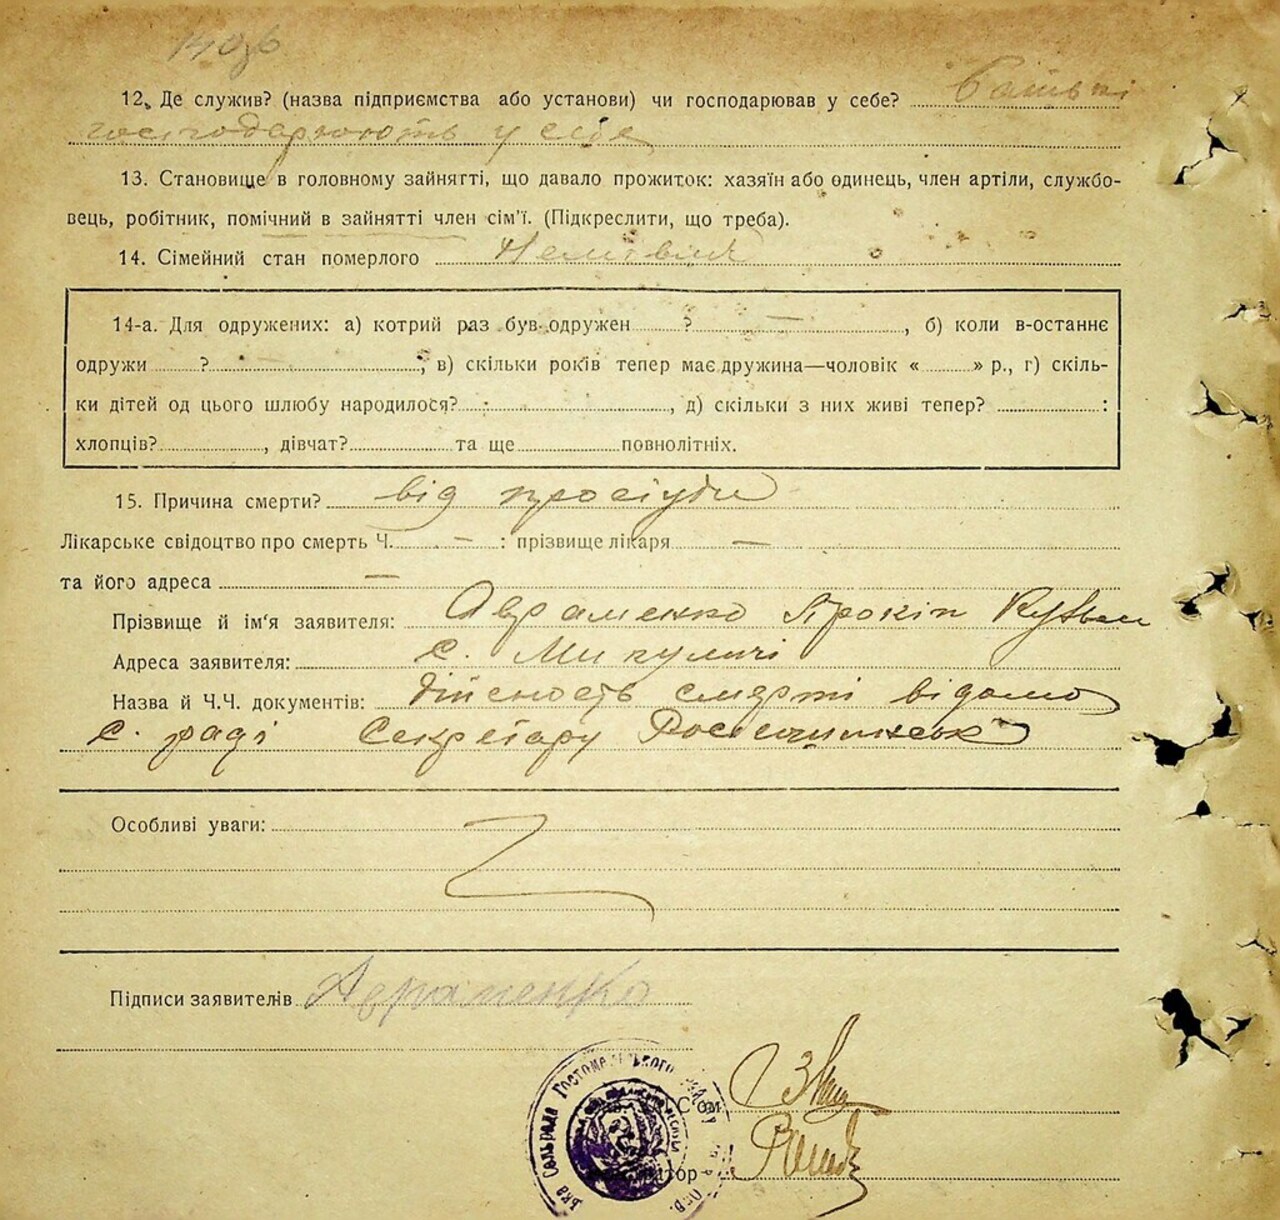 12. Де служив? (назва підприємства або установи) чи господарював у себе? Батьки
господарюють у себе
13. Становище в головному зайнятті, що давало прожиток: хазяїн або одинець, член артіли, службо-
вець, робітник, помічний в зайнятті член сім'ї. (Підкреслити, що треба).
14. Сімейний стан померлого
14-а. Для одружених: а) котрий раз був одружен ? —, б) коли в-останнє
одружи ?, в) скільки років тепер має дружина—чоловік « » р., г) скіль-
ки дітей од цього шлюбу народилося? :, д) скільки з них живі тепер? :
хлопців?, дівчат? та ще повнолітніх.
15. Причина смерти? від простуди
Лікарське свідоцтво про смерть Ч. — : прізвище лікаря —
та його адреса —
Прізвище й ім'я заявителя: Авраменко Прокіп
Адреса заявителя: с. Микуличі
Назва й Ч.Ч. документів: дійсность смерті відомо
с. раді Секретару
Особливі уваги:
Підписи заявителів Авраменко
Сельрада Гостомельського